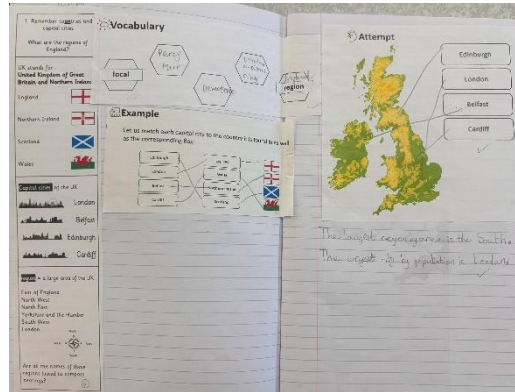 1 Remember countries and
capital cities
What are the regions of
England?
UK stands for
United Kingdom of Great
Britain and Northern Ireland
England
Northern Ireland
Scotland
Wales
Capital cities of the UK
London
Belfast
Edinburgh
Cardiff
region = a large area of the UK
East of England
North West
North East
Yorkshire and the Humber
South West
London
Are all the names of these
regions linked to compass
bearings?
Vocabulary
local
Percy
Main
region
Example
Let us match each capital city to the country it is found in as well
as the corresponding flag.
Edinburgh
London
Belfast
Cardiff
England
Wales
Northern Ireland
Scotland
Attempt
Edinburgh
London
Belfast
Cardiff
The largest region is the South
by population is London.